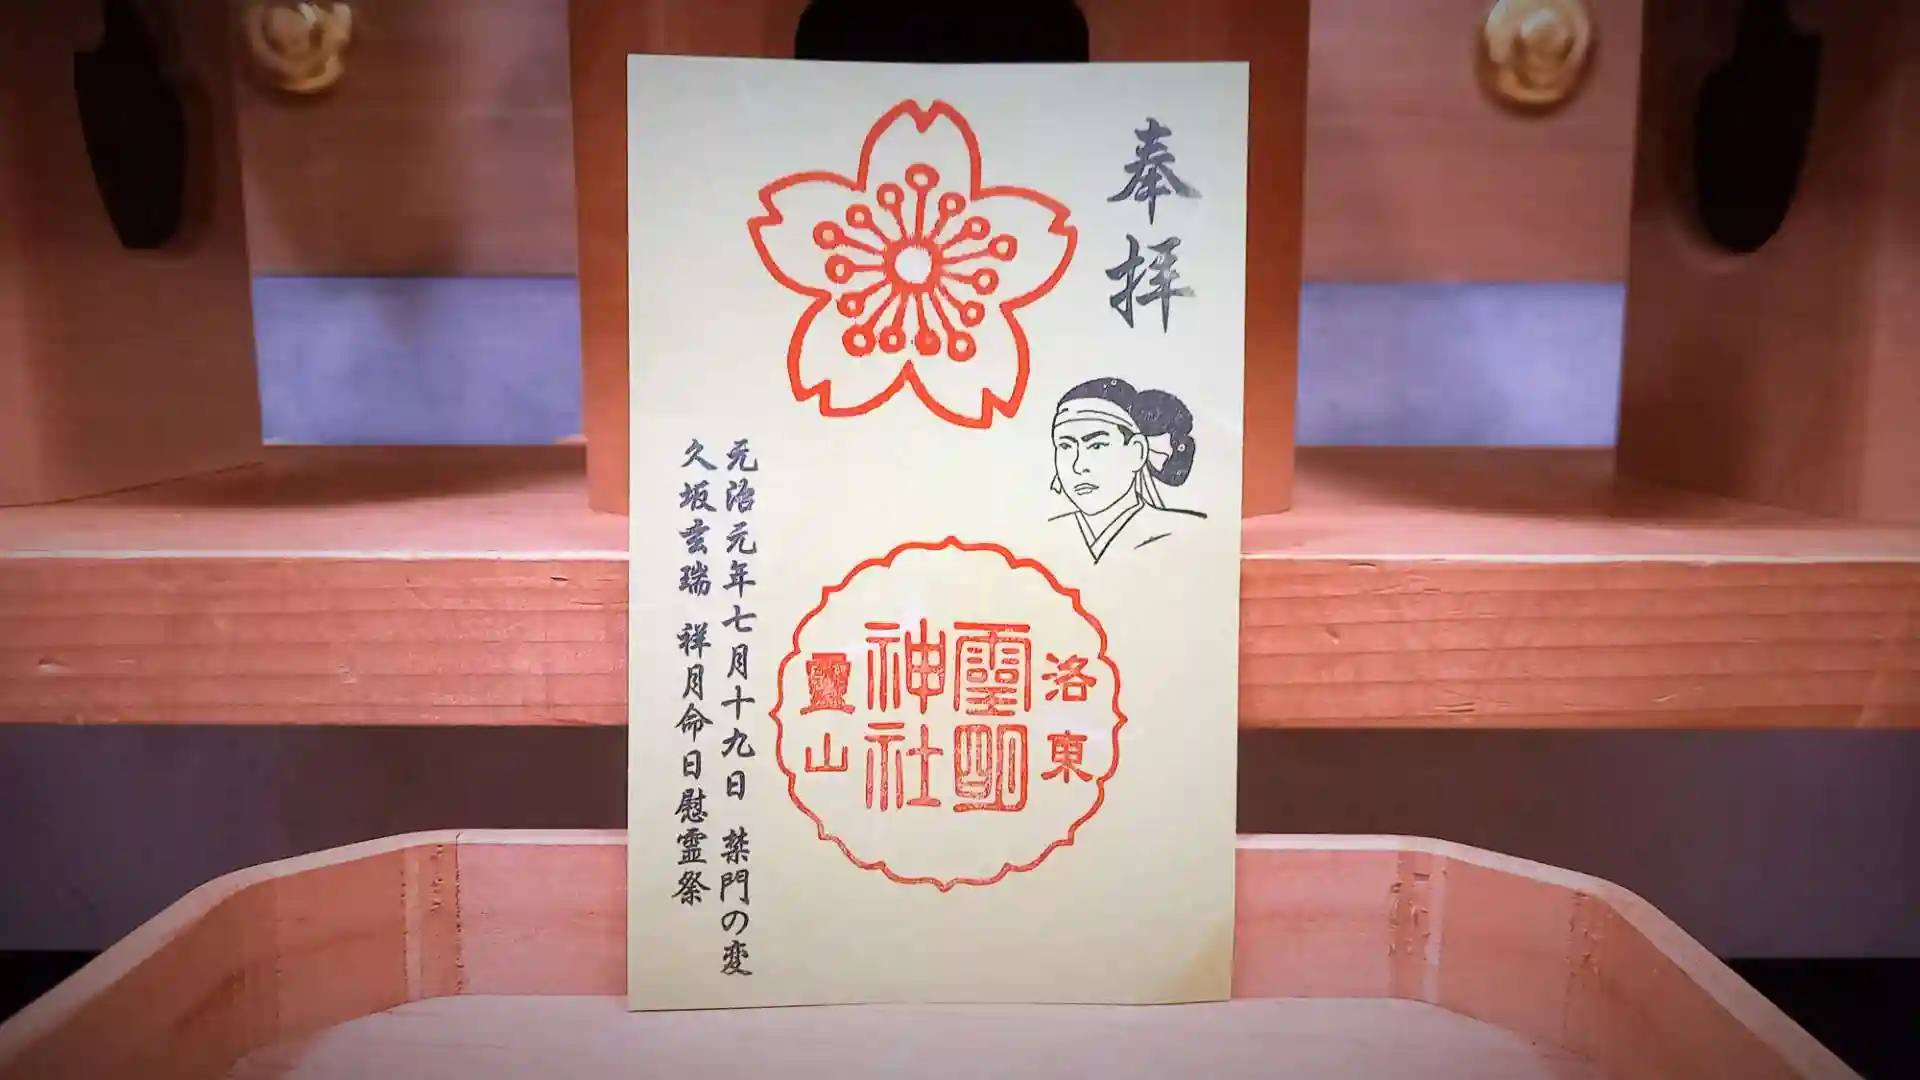 奉拝
洛東
霊明
神社
霊山
元治元年七月十九日 禁門の変
久坂玄瑞 祥月命日慰霊祭